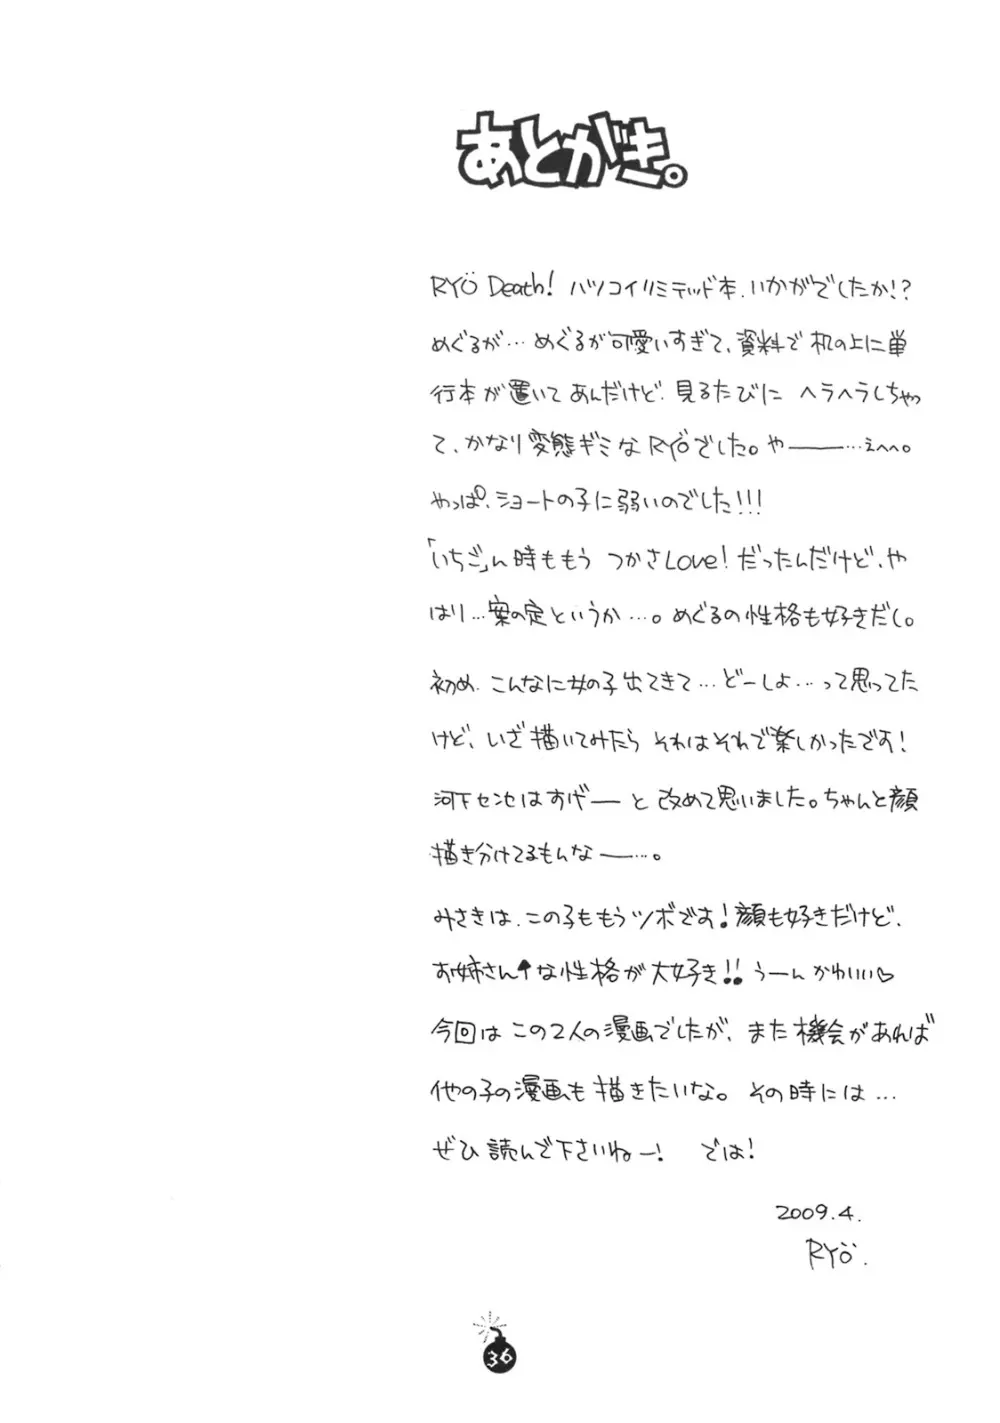 あとがき。
RYÖ Death! ハツコイリミテッド本、いかがでしたか!?
めぐるが…めぐるが可愛いすぎて、資料で机の上に単
行本が置いてあんだけど、見るたびに ヘラヘラしちゃっ
て、かなり変態ギミなRYÖでした。や――…えへへ。
やっぱ、ショートの子に弱いのでした!!!
「いちご」ん時ももう つかさLove!だったんだけど、や
はり…案の定というか…。めぐるの性格も好きだし。
初め、こんなに女の子出てきて…どーしよ…って思ってた
けど、いざ描いてみたら それはそれで楽しかったです!
河下センセはすげーと改めて思いました。ちゃんと顔
描き分けてるもんなー…。
みさきは、この子ももうツボです!顔も好きだけど、
お姉さん↑な性格が大好き!!うーんかわいい♡
今回はこの2人の漫画でしたが、また機会があれば
他の子の漫画も描きたいな。その時には…
ぜひ読んで下さいねー! では!
2009.4.
RYÖ.
36